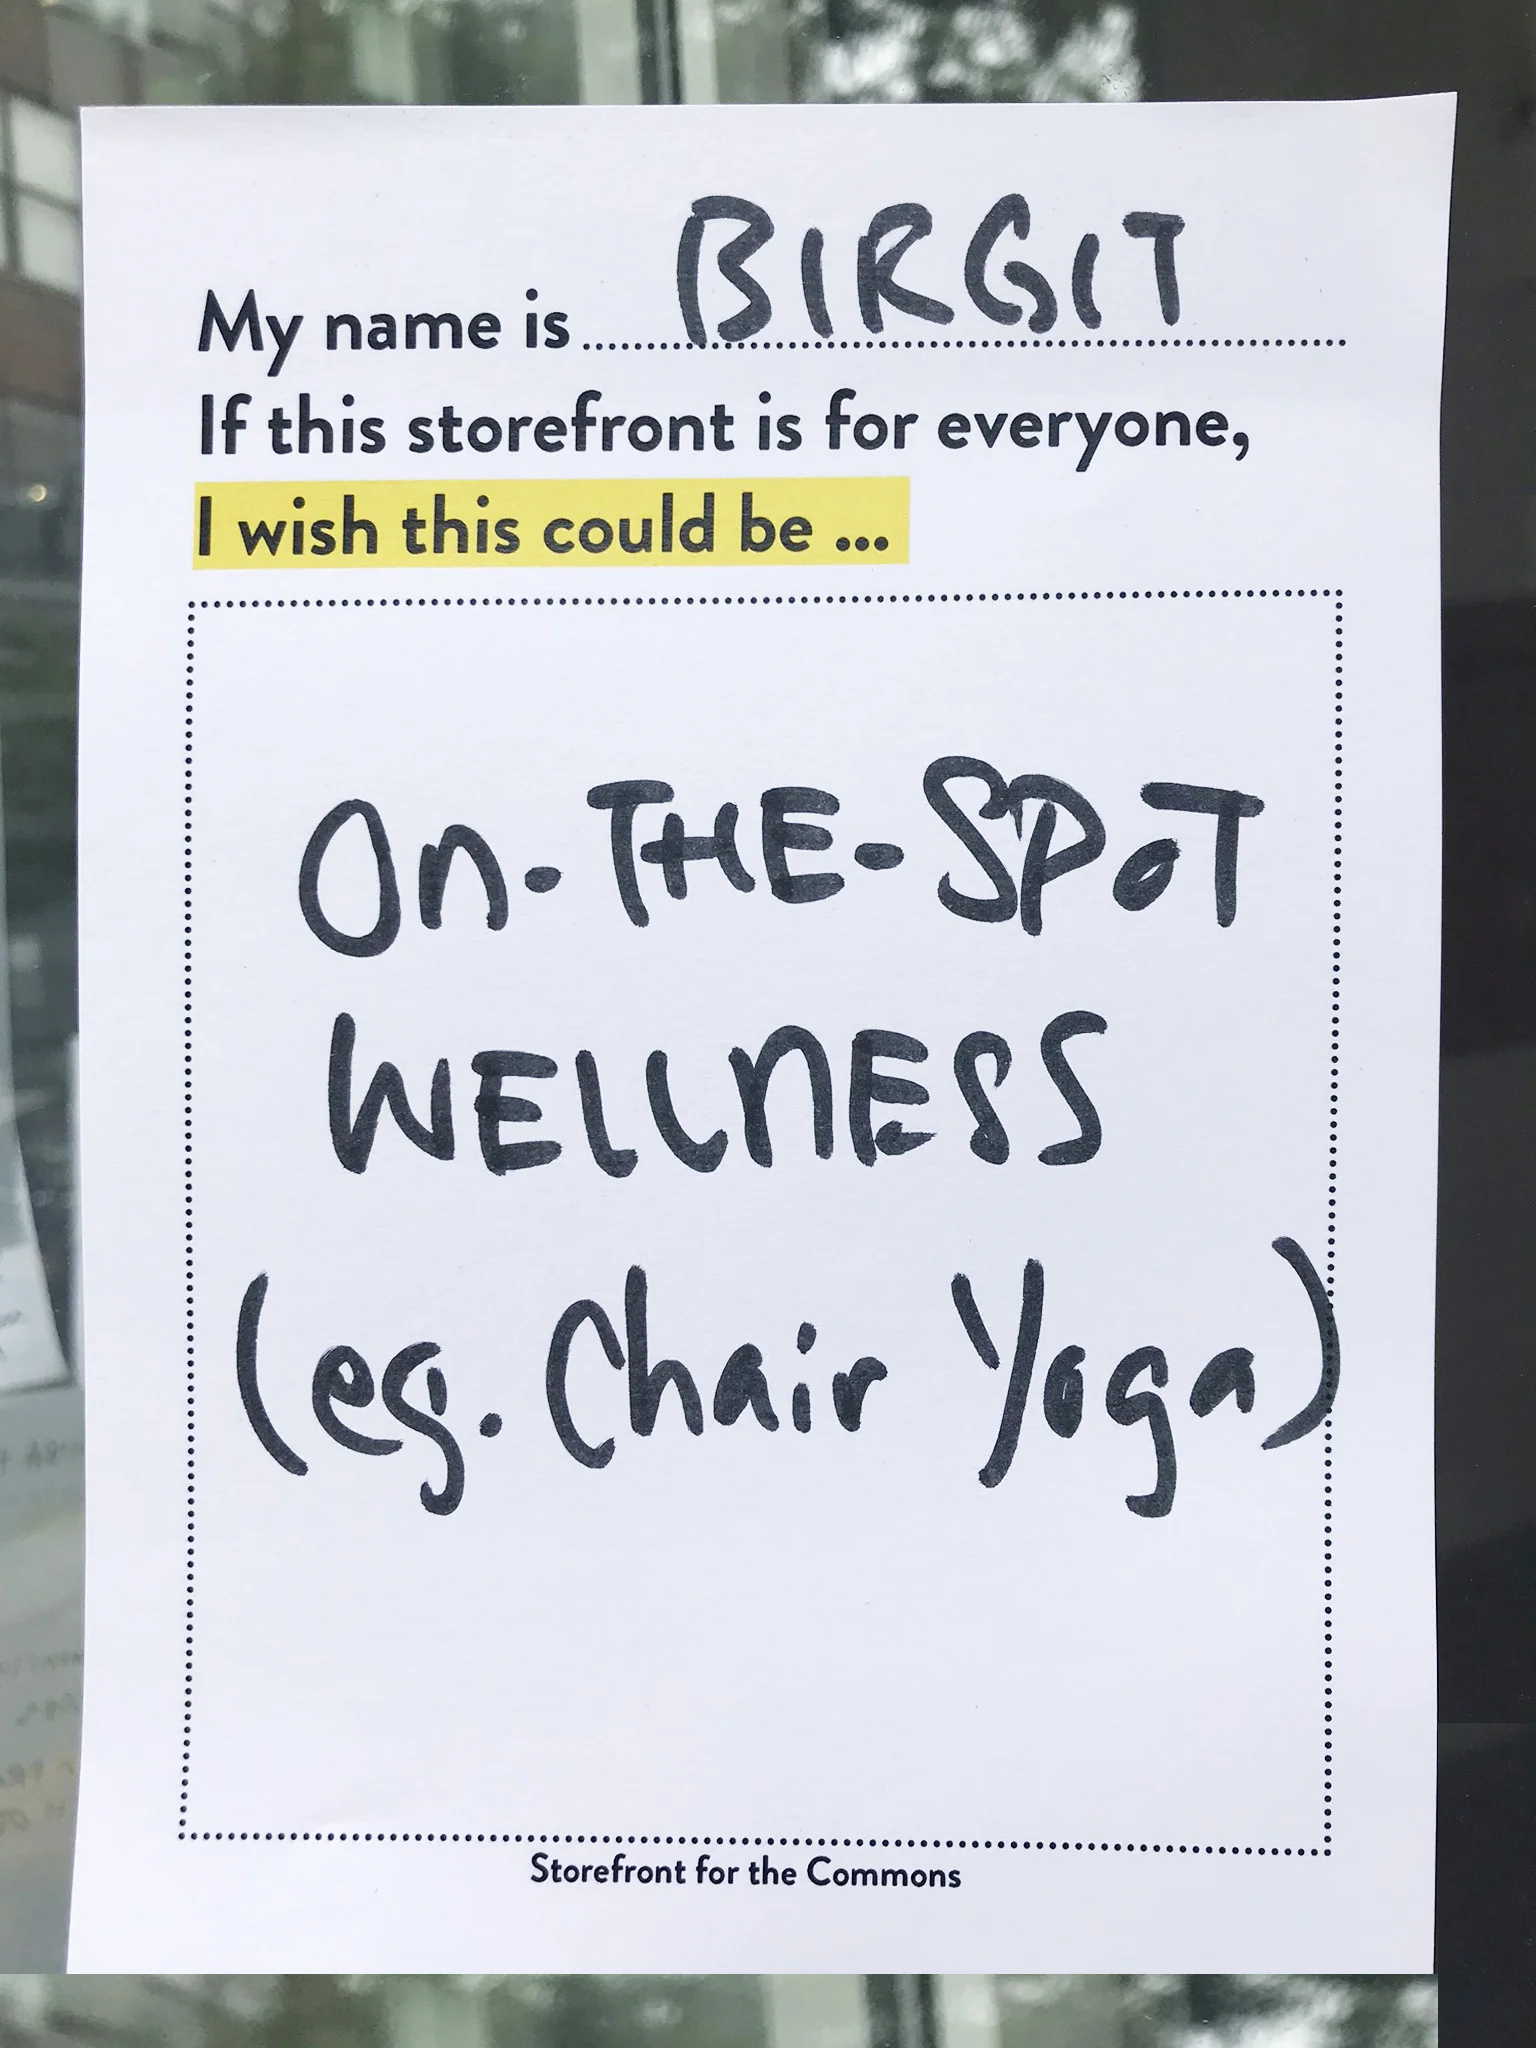 My name is BIRGIT
If this storefront is for everyone,
I wish this could be ...
On-THE-SPOT
WELLNESS
(eg. Chair Yoga)
Storefront for the Commons